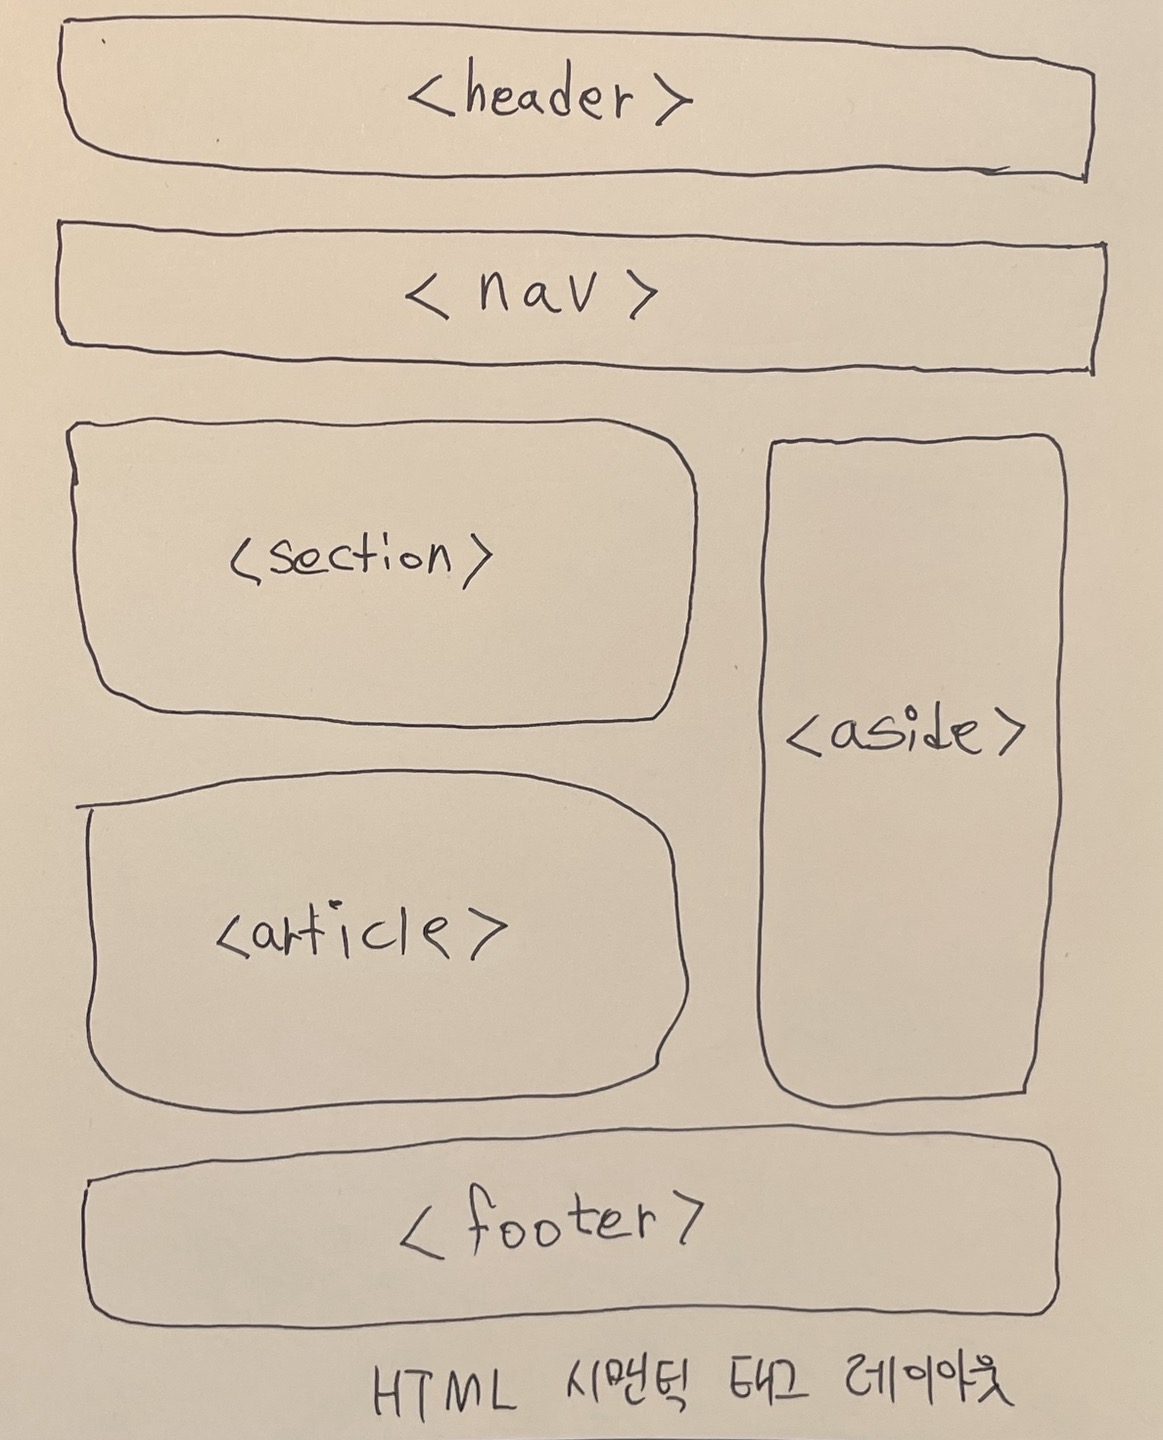 <header>
< nav >
<section>
<aside>
<article>
< footer >
HTML 시맨틱 태그 레이아웃